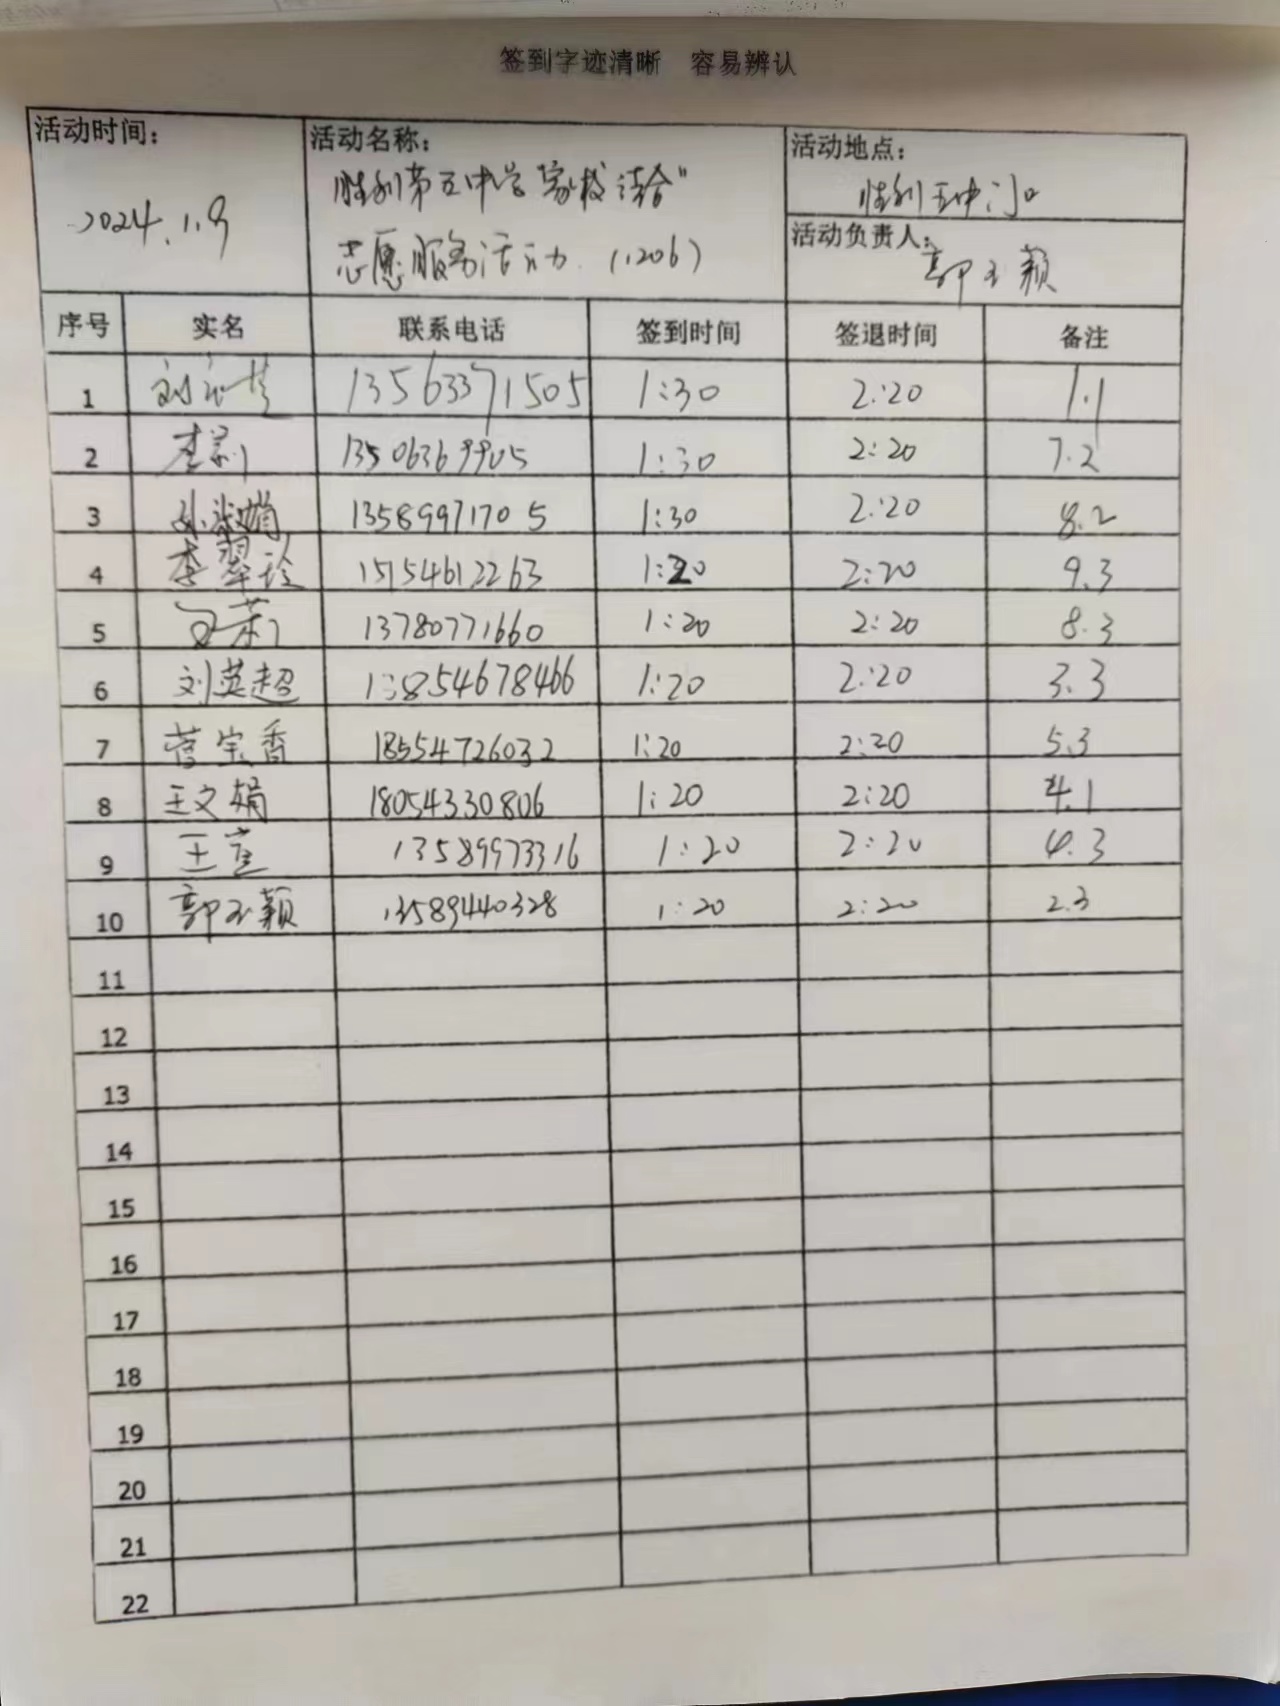 签到字迹清晰 容易辨认
活动时间: 2024.1.9
活动名称: 胜利第五中学"家校结合"
志愿服务活动 (1206)
活动地点: 胜利五中门口
活动负责人: 郭玉颖
序号 实名 联系电话 签到时间 签退时间 备注
1 刘 13563371505 1:30 2:20 1.1
2 李 13506369905 1:30 2:20 7.2
3 孙淑娟 13589971705 1:30 2:20 8.2
4 李翠玲 15154612263 1:20 2:20 9.3
5 13780771660 1:20 2:20 8.3
6 刘英超 13854678466 1:20 2:20 3.3
7 宝香 18554726032 1:20 2:20 5.3
8 王文娟 18054330806 1:20 2:20 4.1
9 王 13589973316 1:20 2:20 4.3
10 郭玉颖 13589440328 1:20 2:20 2.3
11
12
13
14
15
16
17
18
19
20
21
22